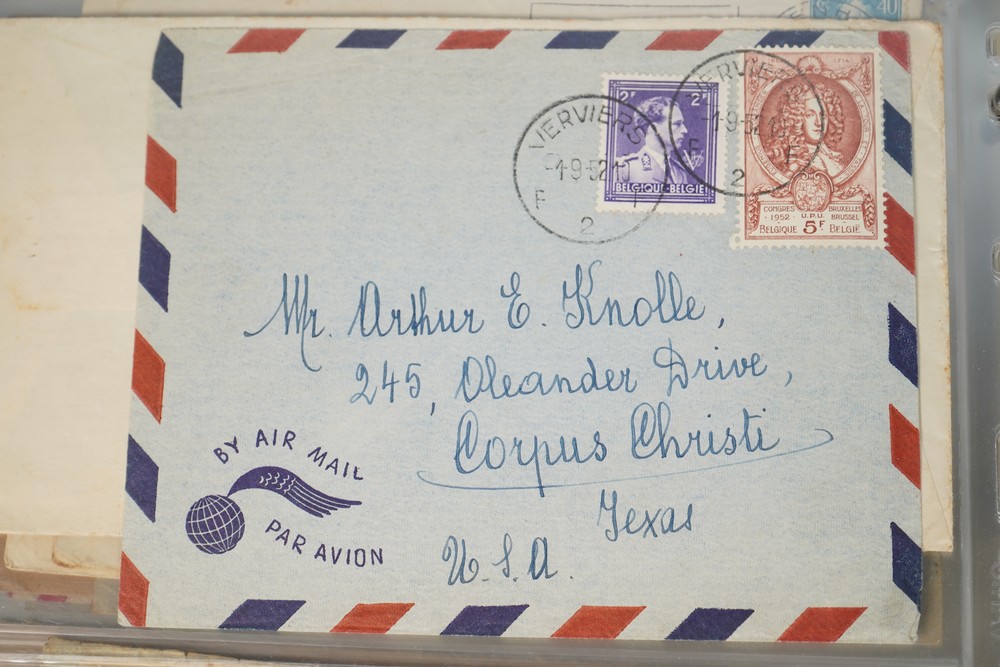 40
VERVIERS
-1-9-52 10
F
2
2F 2F
BELGIQUE-BELGIE
VERVIE
-1-9-52
F F
2
CONGRES BRUXELLES
1952 U.P.U. BRUSSEL
BELGIQUE 5F BELGIË
Mr. Arthur E. Knolle,
245, Oleander Drive,
Corpus Christi
Texas
U.S.A.
BY AIR MAIL
PAR AVION